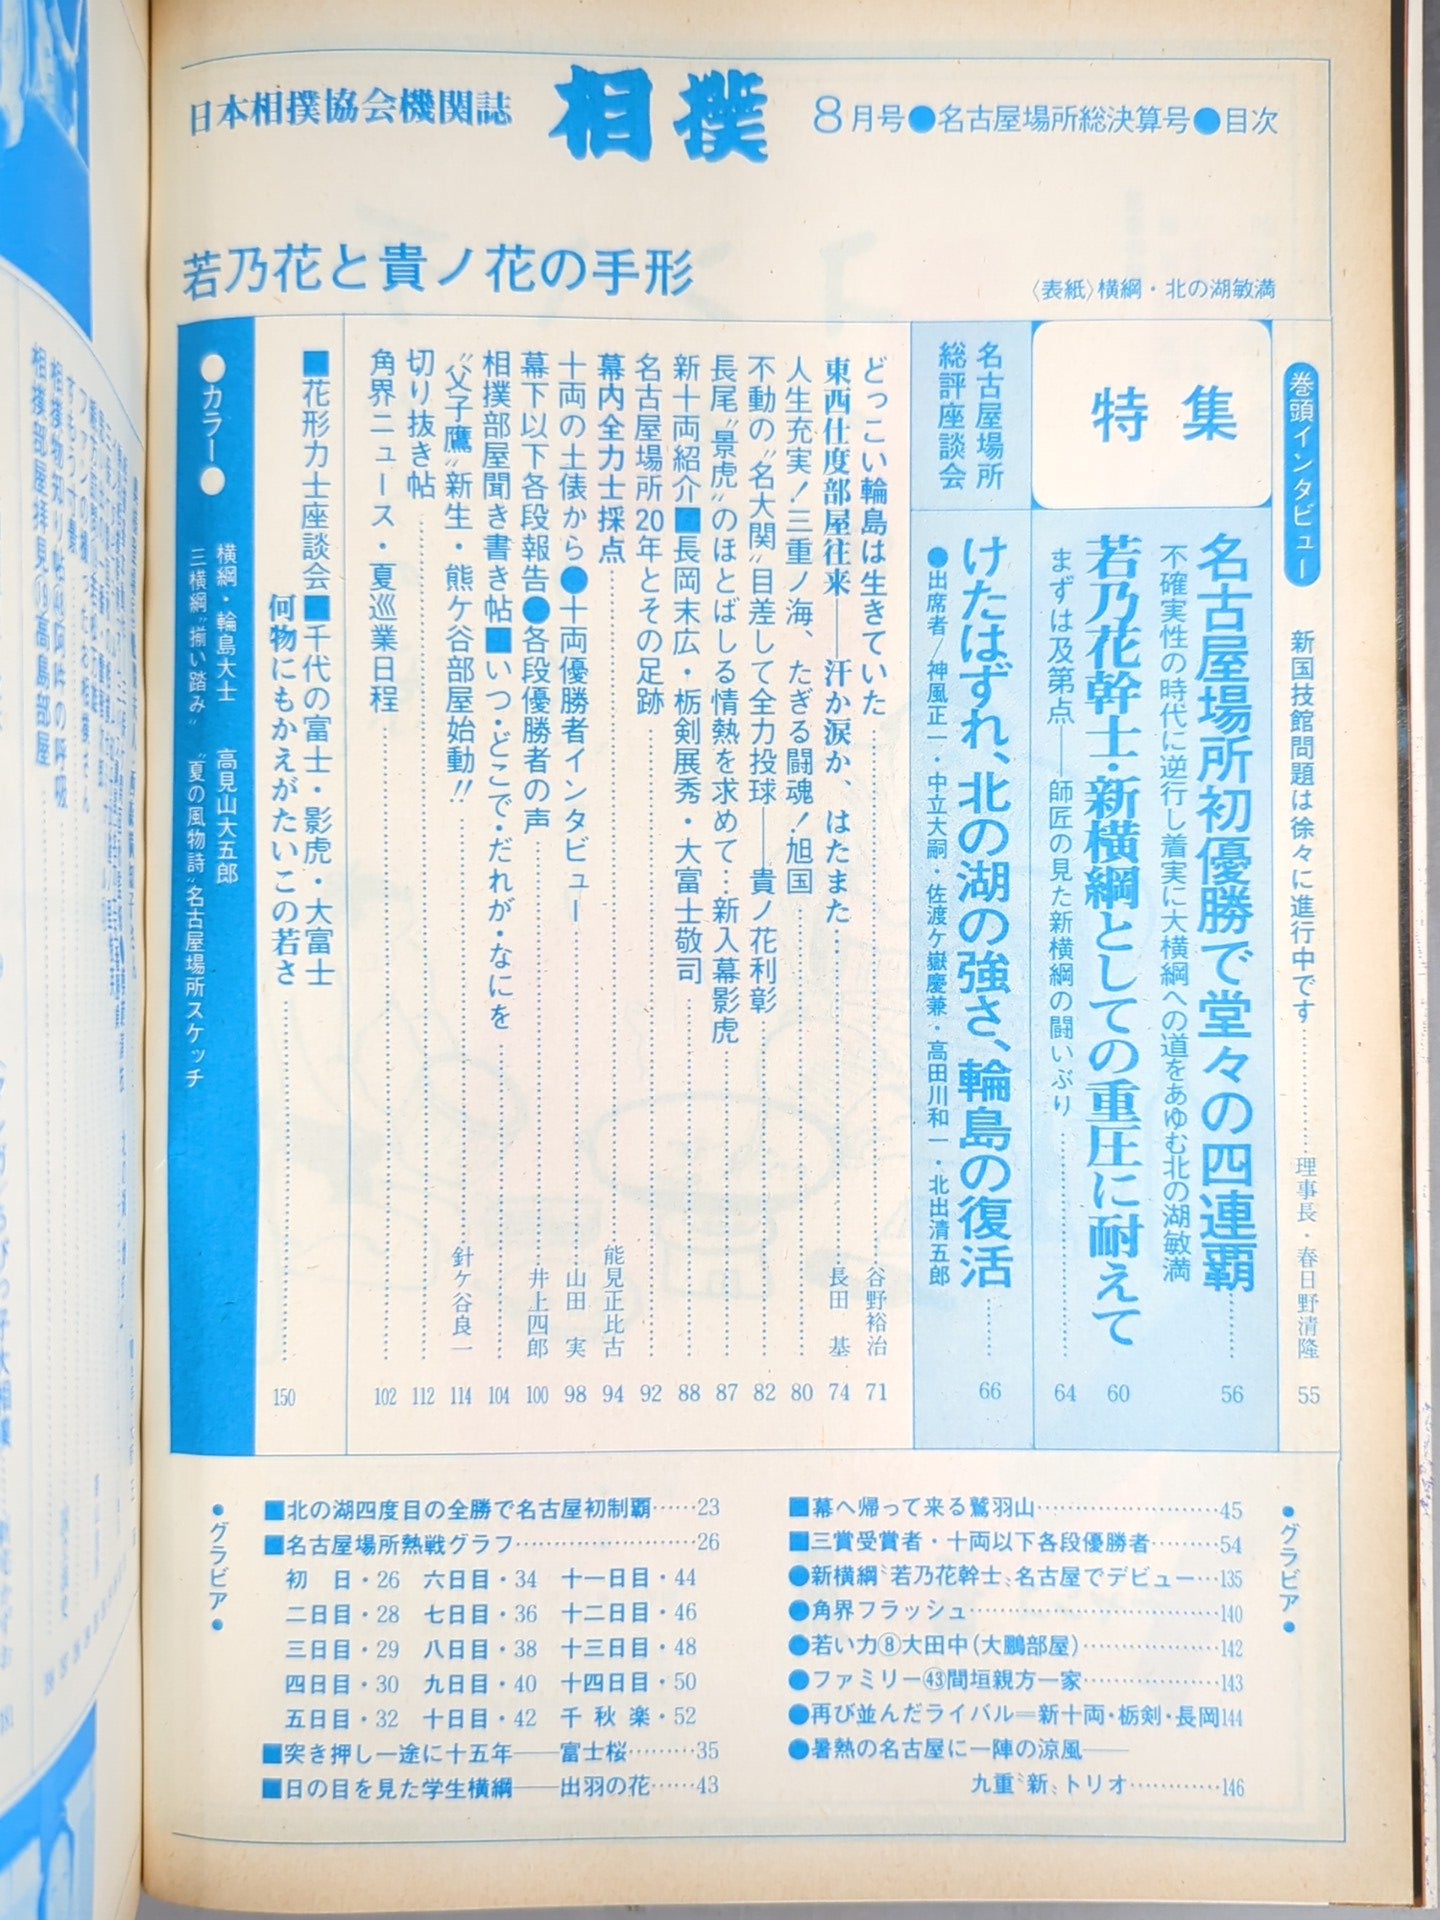 日本相撲協会機関誌 相撲 8月号●名古屋場所総決算号●目次
若乃花と貴ノ花の手形
〈表紙〉横綱・北の湖敏満
巻頭インタビュー 新国技館問題は徐々に進行中です…………理事長・春日野清隆 55
特集
名古屋場所初優勝で堂々の四連覇…… 56
不確実性の時代に逆行し着実に大横綱への道をあゆむ北の湖敏満
若乃花幹士・新横綱としての重圧に耐えて 60
まずは及第点――師匠の見た新横綱の闘いぶり…… 64
名古屋場所
総評座談会
けたはずれ、北の湖の強さ、輪島の復活…… 66
●出席者/神風正一・中立大嗣・佐渡ケ嶽慶兼・高田川和一・北出清五郎
どっこい輪島は生きていた……谷野裕治 71
東西仕度部屋往来――汗か涙か、はたまた……長田 基 74
人生充実!三重ノ海、たぎる闘魂!旭国…… 80
不動の〝名大関〟目差して全力投球――貴ノ花利彰…… 82
長尾〝景虎〟のほとばしる情熱を求めて…新入幕影虎…… 87
新十両紹介■長岡末広・栃剣展秀・大富士敬司…… 88
名古屋場所20年とその足跡…… 92
幕内全力士採点……能見正比古 94
十両の土俵から●十両優勝者インタビュー……山田 実 98
幕下以下各段報告●各段優勝者の声……井上四郎 100
相撲部屋聞き書き帖■いつ・どこで・だれが・なにを…… 104
〝父子鷹〟新生・熊ケ谷部屋始動!!……針ケ谷良一 114
切り抜き帖…… 112
角界ニュース・夏巡業日程…… 102
■花形力士座談会■千代の富士・影虎・大富士
何物にもかえがたいこの若さ…… 150
●カラー●
横綱・輪島大士 高見山大五郎
三横綱〝揃い踏み〟 〝夏の風物詩〟名古屋場所スケッチ
●グラビア●
■幕へ帰って来る鷲羽山……45
■三賞受賞者・十両以下各段優勝者……54
●新横綱〝若乃花幹士〟名古屋でデビュー…135
●角界フラッシュ……140
●若い力⑧大田中(大鵬部屋)……142
●ファミリー㊸間垣親方一家……143
●再び並んだライバル=新十両・栃剣・長岡144
●暑熱の名古屋に一陣の涼風――
九重〝新〟トリオ……146
■北の湖四度目の全勝で名古屋初制覇……23
■名古屋場所熱戦グラフ……26
初 日・26 六日目・34 十一日目・44
二日目・28 七日目・36 十二日目・46
三日目・29 八日目・38 十三日目・48
四日目・30 九日目・40 十四日目・50
五日目・32 十日目・42 千 秋 楽・52
■突き押し一途に十五年――富士桜……35
■日の目を見た学生横綱――出羽の花……43
●グラビア●
相撲部屋拝見⑲高島部屋